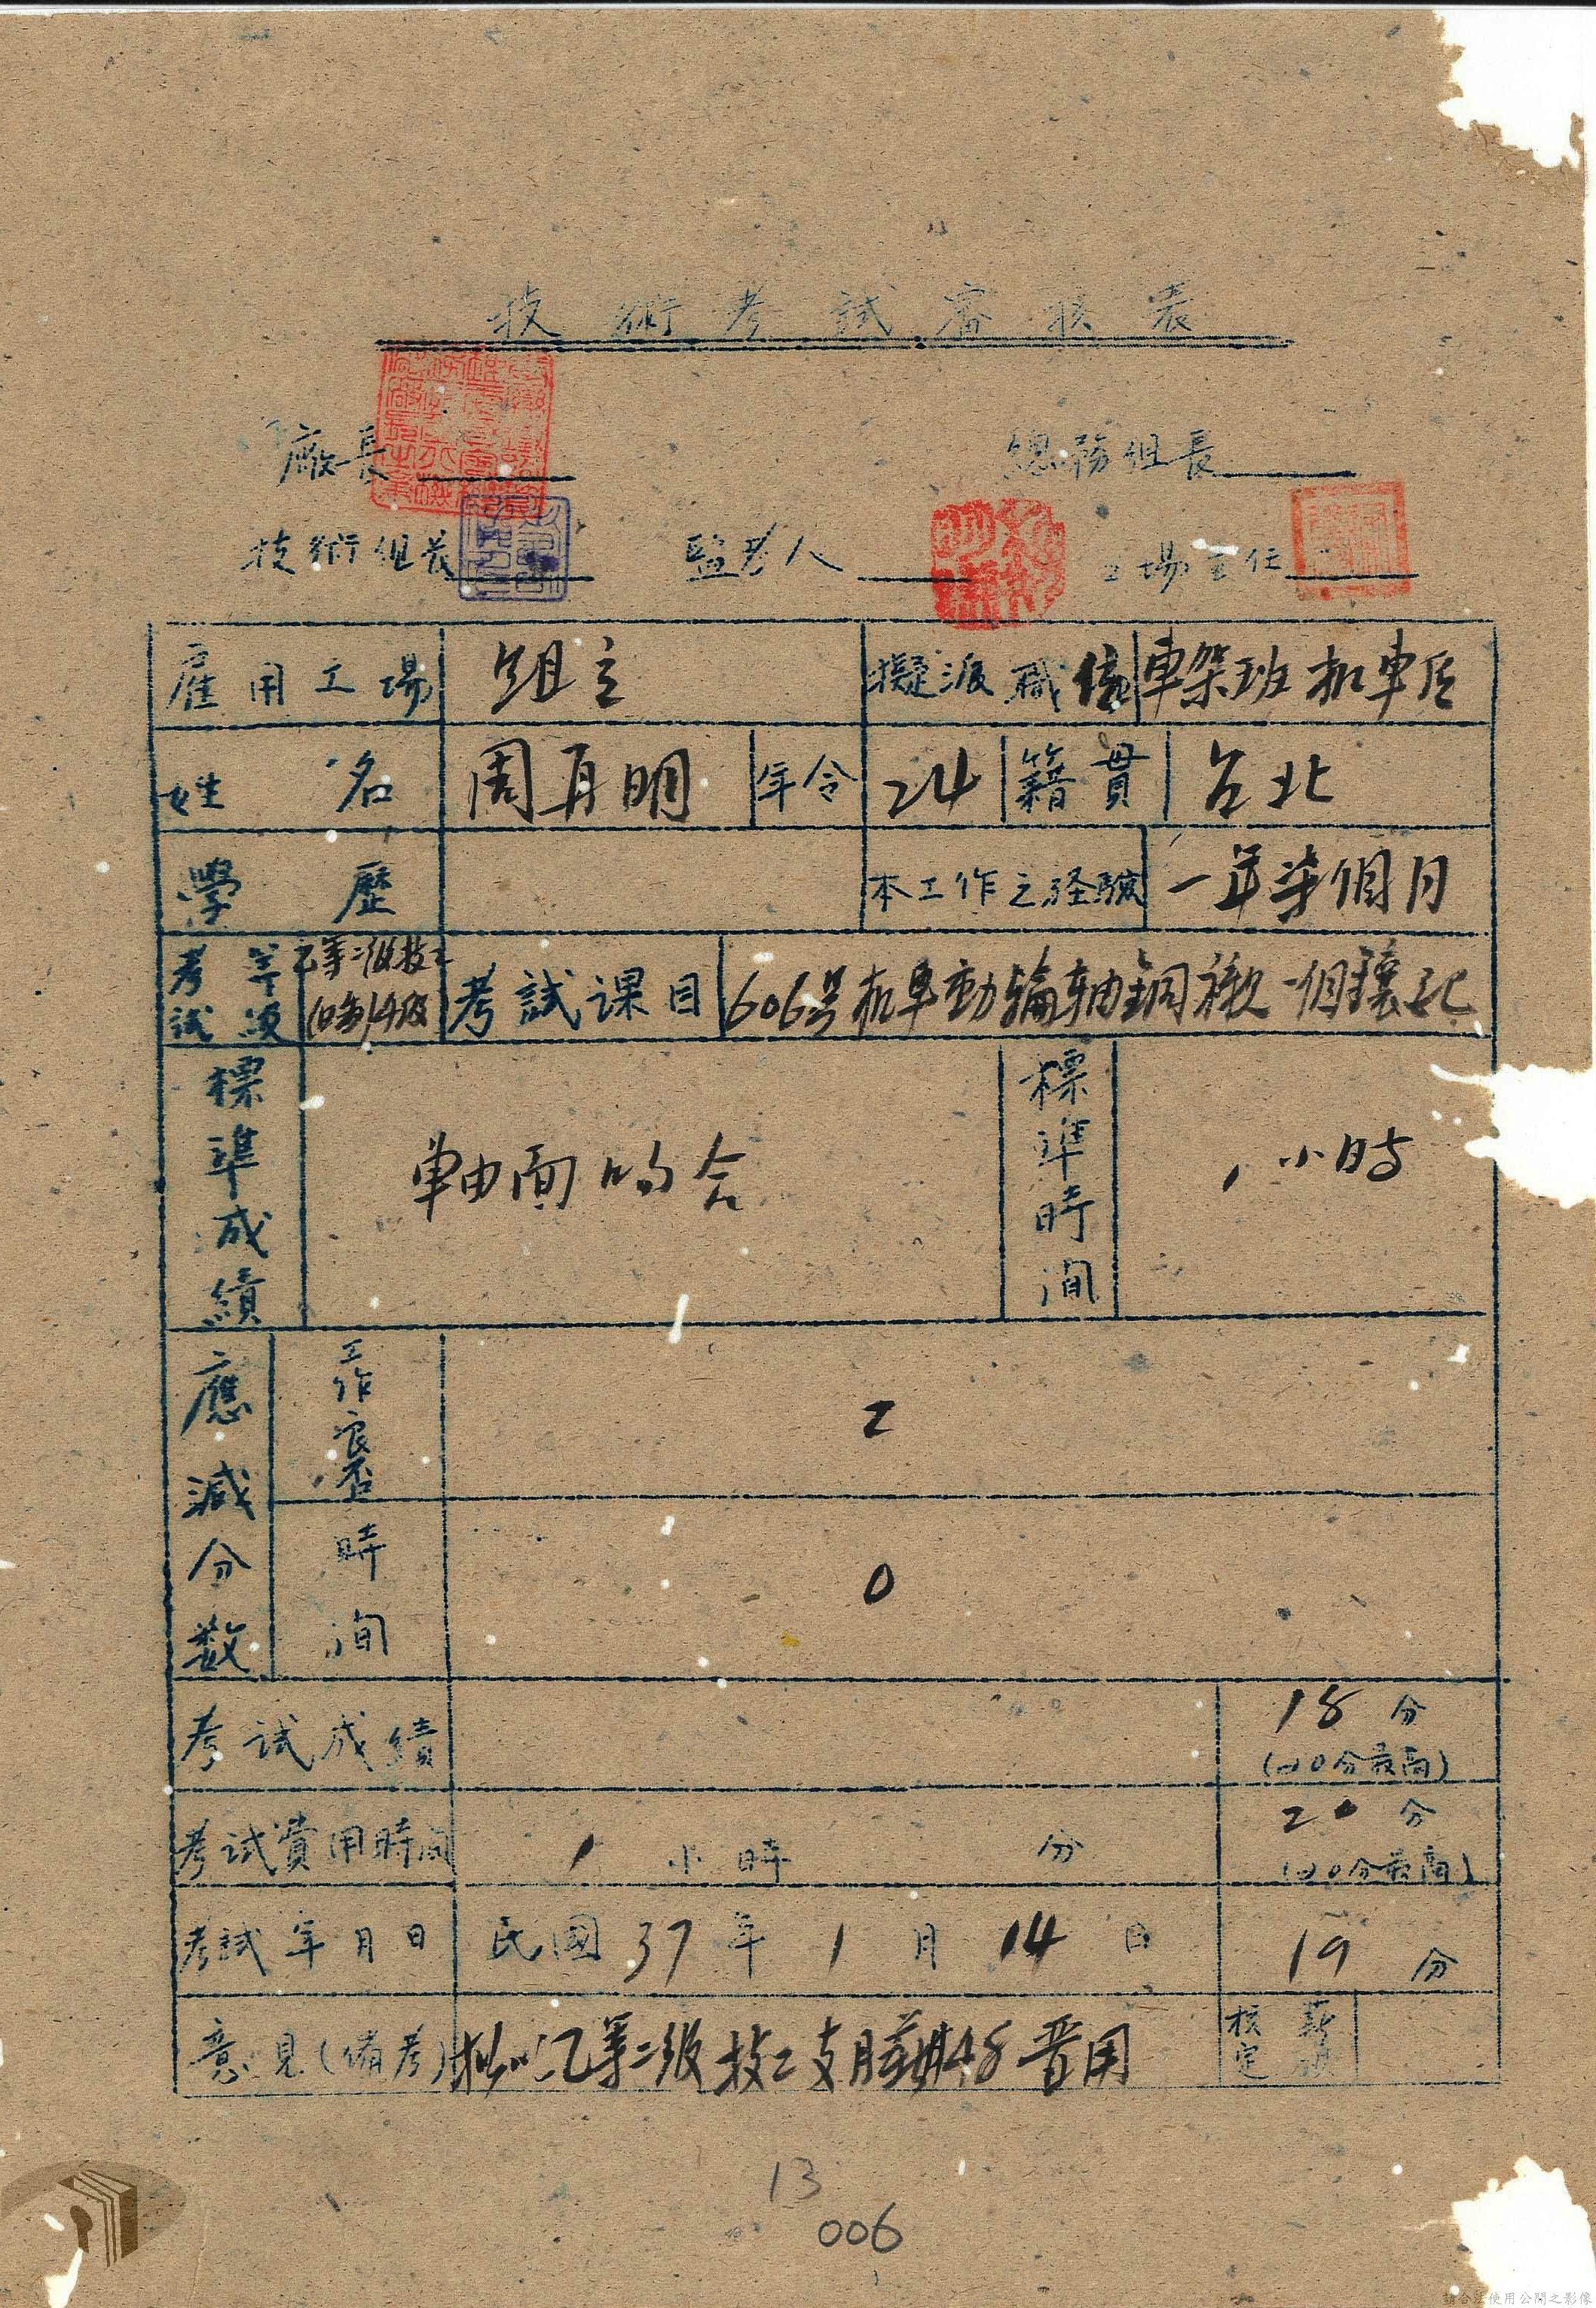 技術考試審核表
廠長 總務組長
技術組長 監考人 工場主任
雇用工場 組立 擬派職位 車架班机車匠
姓名 周再明 年令 24 籍貫 台北
學歷 本工作之経驗 一年柒個月
考試等級 乙等二級技工 考試课目 606号机車動輪軸銅襯一個鑲配
標準成績 軸面吻合 標準時间 1小時
應減分数 工作良否 2
時间 0
考試成績 18分
(20分最高)
考試費用時间 1小時 分 20分
(20分最高)
考試年月日 民國37年1月14日 19分
意見(備考) 拟以乙等二級技工支月薪48晋用 核定薪
13
006
請合法使用公開之影像